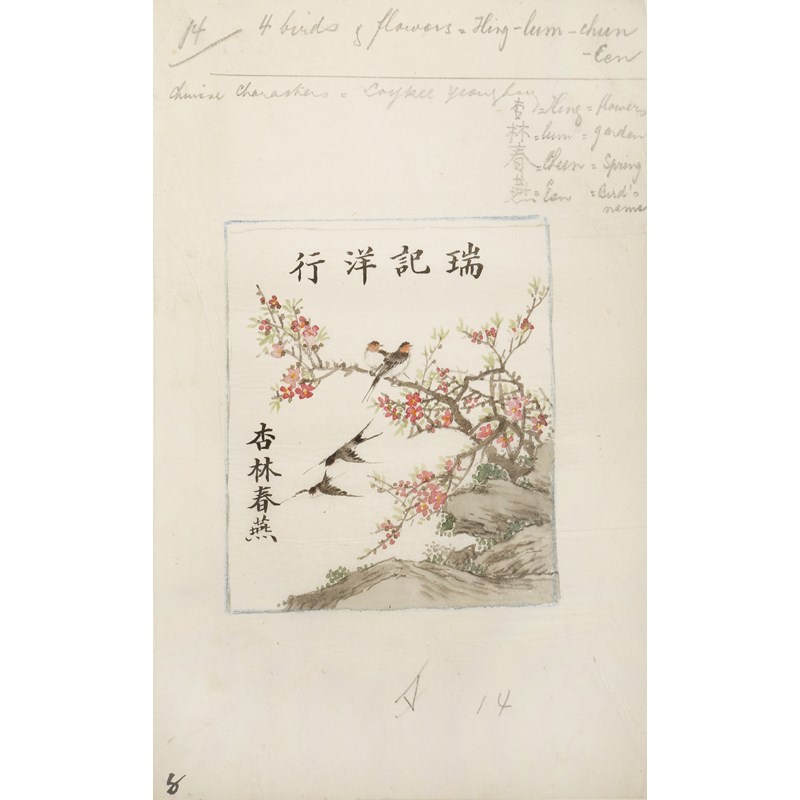 14 4 birds & flowers = Hing-lum-chun
-Een
Chinese Characters =
杏 = Hing = flowers
林 = lum = garden
春 = Chun = Spring
燕 = Een = Bird's
name
瑞記洋行
杏林春燕
14